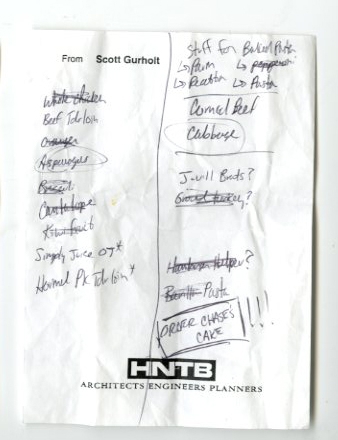 From Scott Gurholt
Whole chicken
Beef Tdrloin
Oranges
Asparagus
Cantalope
Kiwi fruit
Simply Juice OJ*
Hormel Pk Tdrloin*
Stuff for Baked Pasta
↳ Parm ↳ pepperoni
↳ Ricotta ↳ Pasta
Corned Beef
Cabbage
J-will Buds?
Ground turkey?
Hamburger Helper?
Barilla Pasta
ORDER CHASE'S
CAKE !!!!
HNTB
ARCHITECTS ENGINEERS PLANNERS